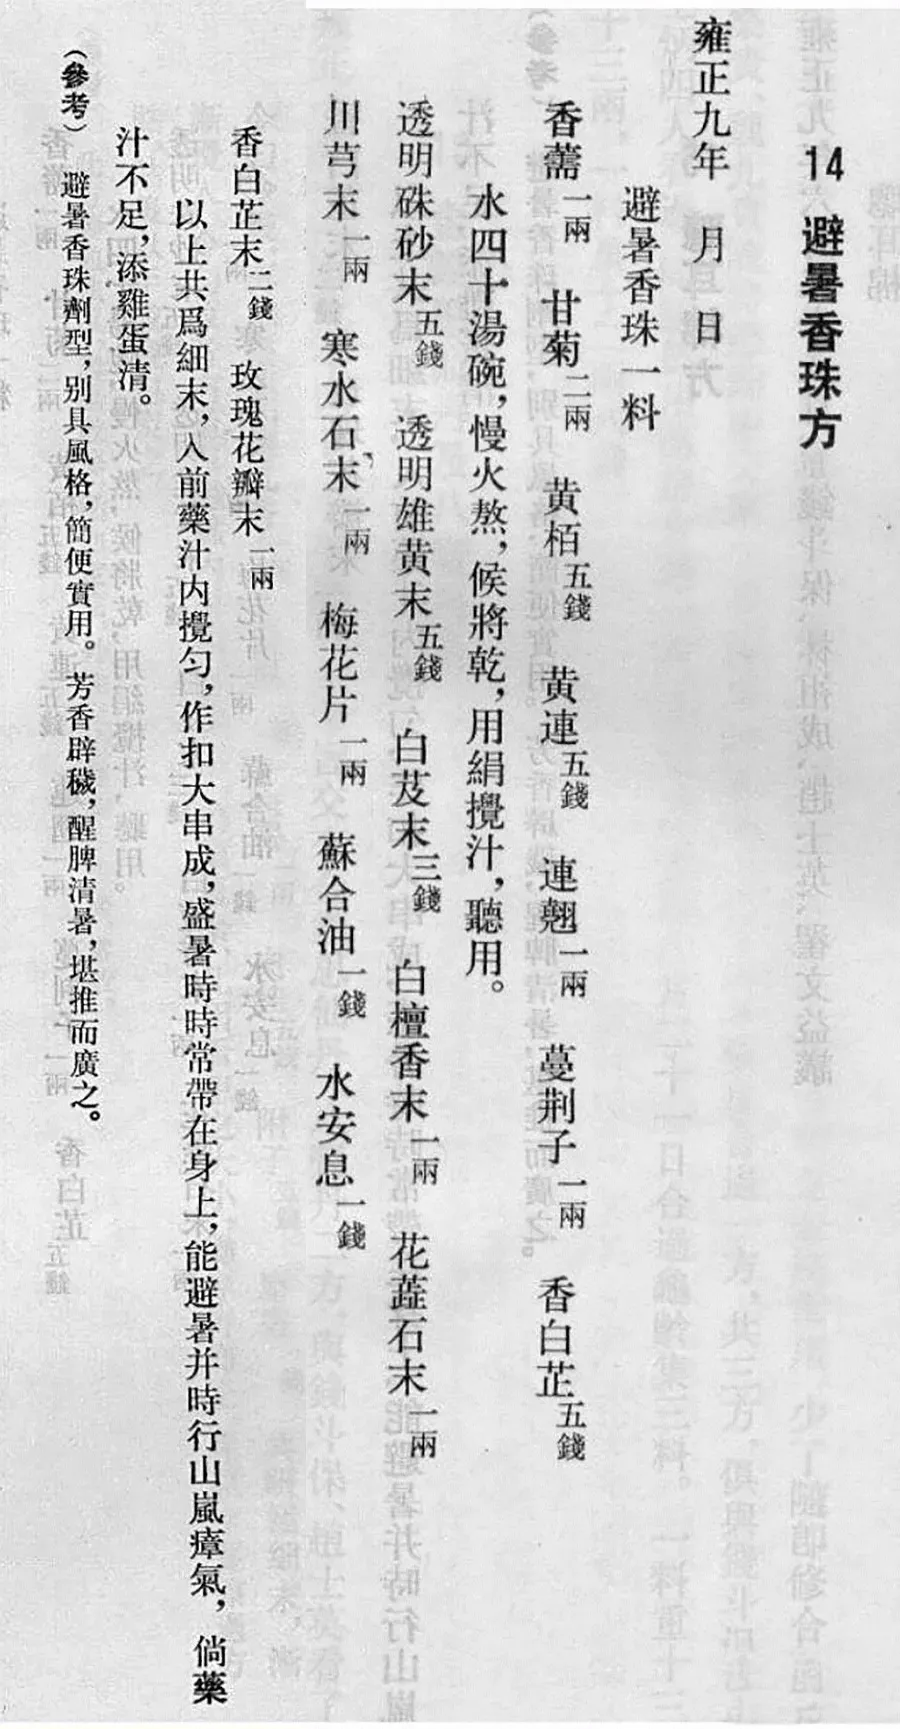 14 避暑香珠方
雍正九年 月 日
避暑香珠一料
香薷一兩 甘菊二兩 黄栢五錢 黄連五錢 連翹一兩 蔓荆子一兩 香白芷五錢
水四十湯碗，慢火熬，候將乾，用絹攪汁，聽用。
透明硃砂末五錢 透明雄黄末五錢 白芨末三錢 白檀香末一兩 花蕋石末一兩
川芎末一兩 寒水石末一兩 梅花片一兩 蘇合油一錢 水安息一錢
香白芷末二錢 玫瑰花瓣末一兩
以上共爲細末，入前藥汁内攪匀，作扣大串成，盛暑時時常帶在身上，能避暑并時行山嵐瘴氣，倘藥
汁不足，添雞蛋清。
（參考） 避暑香珠劑型，别具風格，簡便實用。芳香辟穢，醒脾清暑，堪推而廣之。